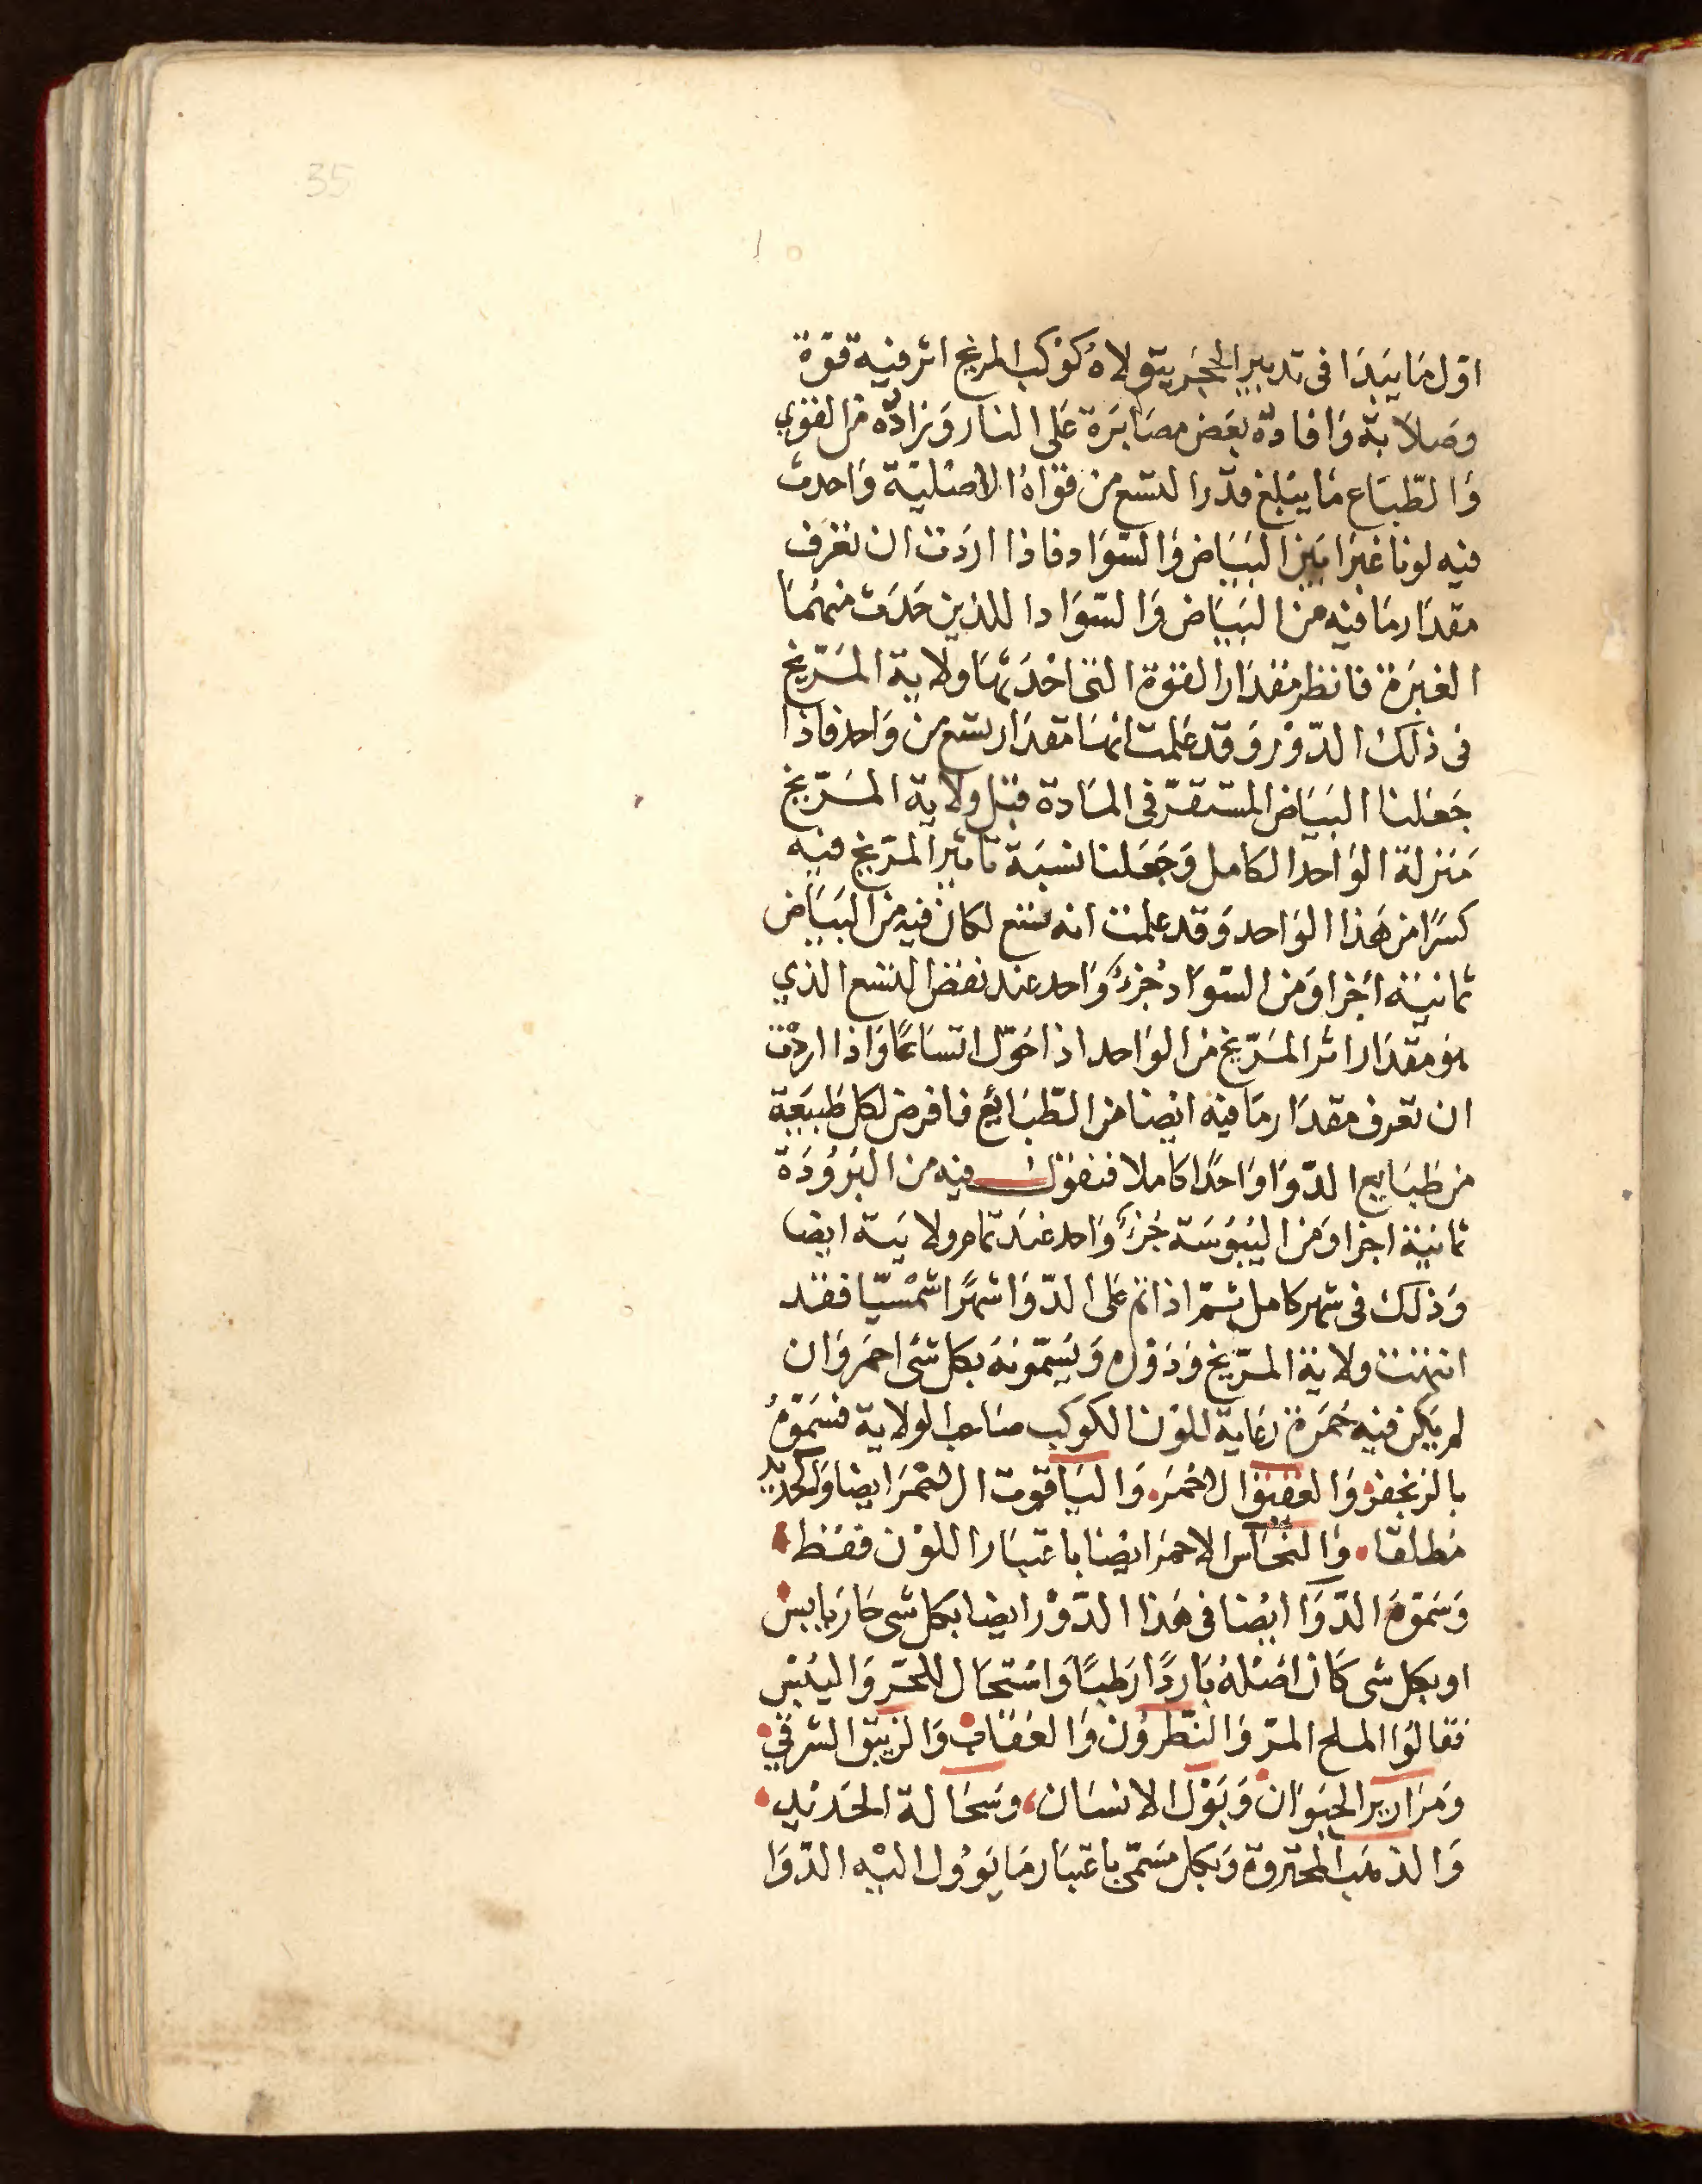 35
اوّل مَا يَبْدَا فى تدبير الحجَر يتولاهُ كَوْكب المريخ اثر فيه قوّة
وصَلاَبة وَافادهُ بعَض مصَابَرَة عَلى النار وَزادَه من القوي
وَالطّبَاع مَا يبْلغ قدرا لتسع من قوَاهُ الاصْليّة وَاحدث
فيه لونا غبرا بَين البَيَاض وَالسّوَاد فاذا ارَدت ان تعْرَف
مقدَار مَا فيه من البيَاض وَالسّوَاد اللذين حَدَث منهُمَا
الغبَرة فانظر مقدَار القوة التى احْدَثها ولاَية المرّيخ
فى ذلك الدّوْر وَقد عَلمت انهَا مقدَار تسع من وَاحد فاذا
جَعَلنا البيَاض المستقرّ فى المَادة قبْل ولاَية المرّيخ
مَنزلة الوَاحد الكامل وَجَعَلنا نسبَة تاثير المرّيخ فيه
كسرًا من هَذا الوَاحد وَقد علمت انه تسع لكان فيه من البَيَاض
ثمانيَة اَجزا وَمن السّوَاد جُزءُ وَاحد عند نقض التسع الذي
هو مقدَار اثر المرّيخ من الوَاحد اذا حَوّل اتسَاعًا وَاذا اردْت
ان تعرف مقدَار مَا فيه ايضا من الطّبَائع فافرض لكل طَبيعَة
من طبَايع الدّوَا وَاحدًا كاملا فنقول فيه من البُرُودَة
ثمانيَة اجزا وَمن اليُبُوسَة جُزءُ وَاحد عنَد تمام ولايَته ايضا
وَذلك فى شهر كامل ثمّ اذا تم عَلى الدّوَا شهرًا شمْسيّا فقد
انتهت ولاية المرّيخ وَدَوْره وَيسَمّونَه بكل شَى احمَر وَان
لم يَكن فيه حُمَرة رعَاية للوْن الكوكب صَاحب الولاية فسَمّوْهُ
بالزنجفر وَالعَقيق الاحْمَر وَاليَاقوت الاحْمَر ايضا وَالحَديد
مُطلقا وَالنحَاس الاحمَر ايضْا باعتبَار اللوْن فقَط
وَسَمّوْهُ الدّوَا ايضْا فى هَذا الدّوْر ايضا بكل شى حَار يَابس
او بكل شى كَان اصْلهُ بَاردًا رَطبًا وَاسْتحَال للحَرّ وَاليُبْس
فقالوُا الملح المرّ وَالنّطرُون وَالعُقَاب وَالزيبق الشرقي
وَمَرَارير الحيَوَان وَبَوْل الانسَان وسحَالة الحَديْد
وَالذهَب المحترقة وَبكل مسَمّى باعتبَار مَا يؤول اليْه الدّوَا